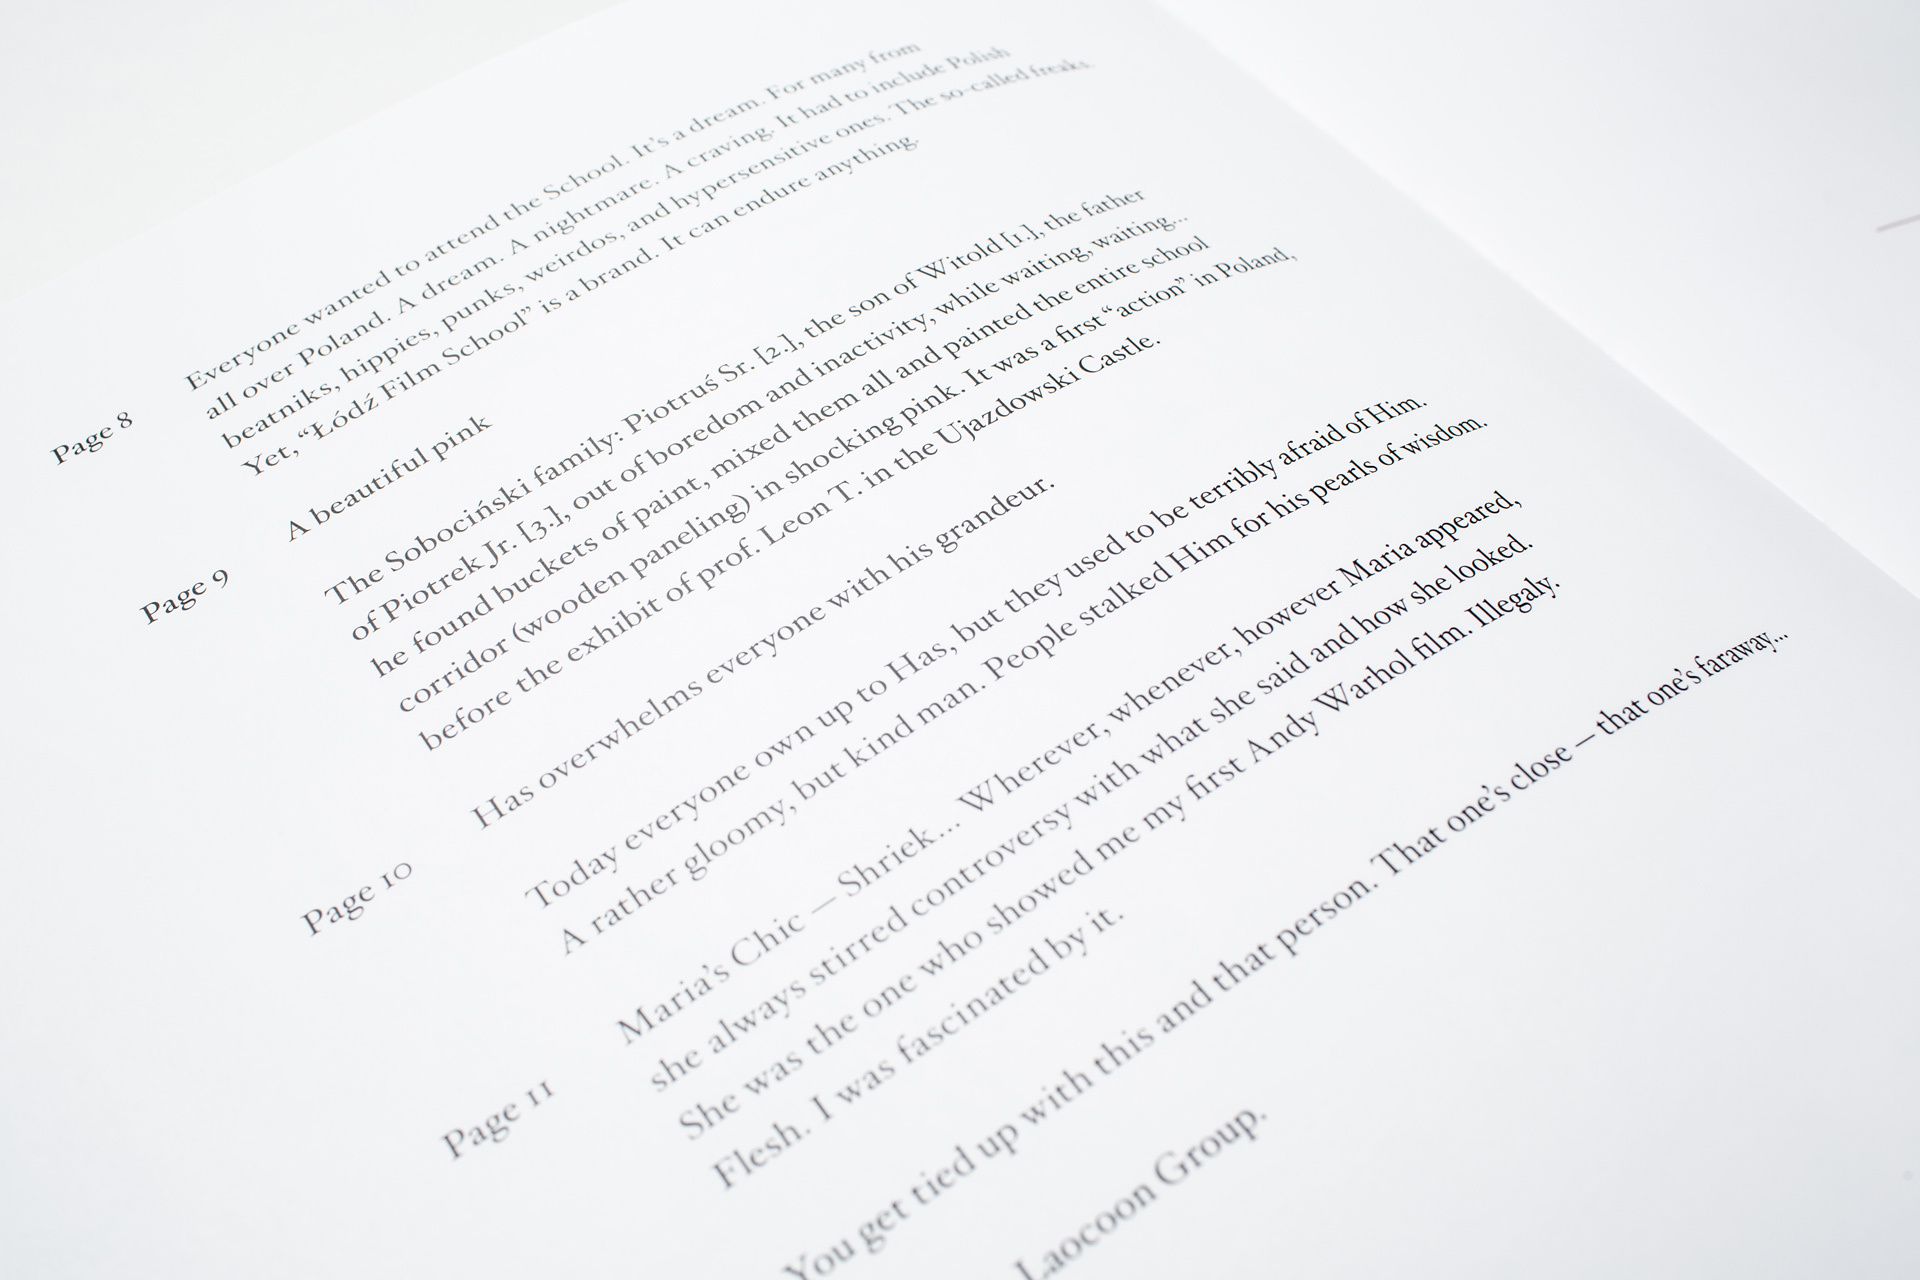 Everyone wanted to attend the School. It's a dream. For many from
all over Poland. A dream. A nightmare. A craving. It had to include Polish
beatniks, hippies, punks, weirdos, and hypersensitive ones. The so-called freaks.
Page 8 Yet, “Łódź Film School” is a brand. It can endure anything.
A beautiful pink
Page 9 The Sobociński family: Piotruś Sr. [2.], the son of Witold [1.], the father
of Piotrek Jr. [3.], out of boredom and inactivity, while waiting, waiting...
he found buckets of paint, mixed them all and painted the entire school
corridor (wooden paneling) in shocking pink. It was a first “action” in Poland,
before the exhibit of prof. Leon T. in the Ujazdowski Castle.
Has overwhelms everyone with his grandeur.
Page 10 Today everyone own up to Has, but they used to be terribly afraid of Him.
A rather gloomy, but kind man. People stalked Him for his pearls of wisdom.
Maria's Chic — Shriek... Wherever, whenever, however Maria appeared,
she always stirred controversy with what she said and how she looked.
Page 11 She was the one who showed me my first Andy Warhol film. Illegaly.
Flesh. I was fascinated by it.
You get tied up with this and that person. That one's close — that one's faraway...
Laocoon Group.